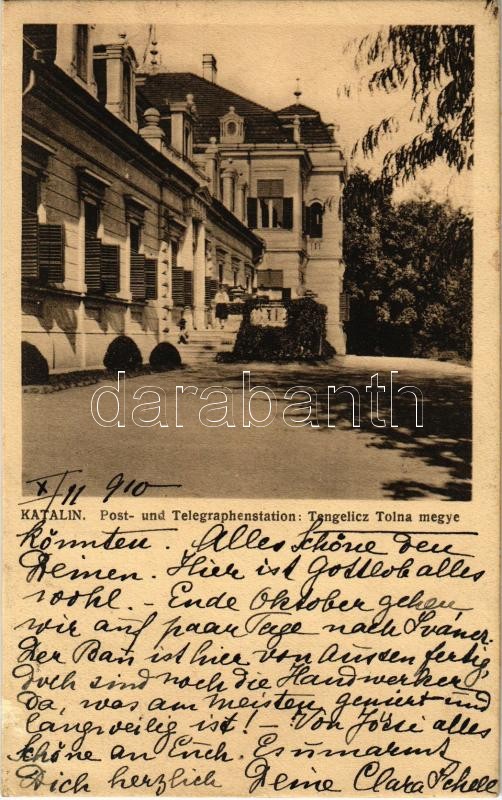 darabanth
X/11 910
KATALIN. Post- und Telegraphenstation: Tengelicz Tolna megye
könnten. Alles Schöne den
Deinen. Hier ist Gottlob alles
wohl. - Ende Oktober gehen
wir auf paar Tage nach Iváncz.
Der Bau ist hier von Aussen fertig,
doch sind noch die Handwerker
da, was am meisten geniert und
langweilig ist! - Von Józsi alles
Schöne an Euch. Es umarmt
Dich herzlich Deine Clara